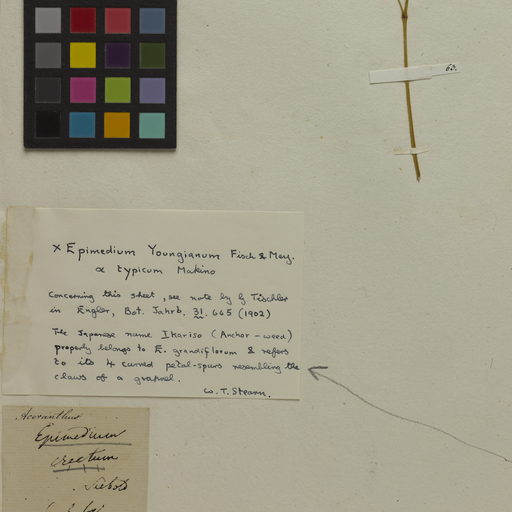 63.
× Epimedium Youngianum Fisch & Mey.
α typicum Makino
Concerning this sheet, see note by G Tischler
in Engler, Bot. Jahrb. 31. 665 (1902)
The Japanese name Ikariso (Anchor-weed)
properly belongs to E. grandiflorum & refers
to its 4 curved petal-spurs resembling the
claws of a grapnel.
W. T. Stearn.
Aceranthus
Epimedium
erectum
Siebold